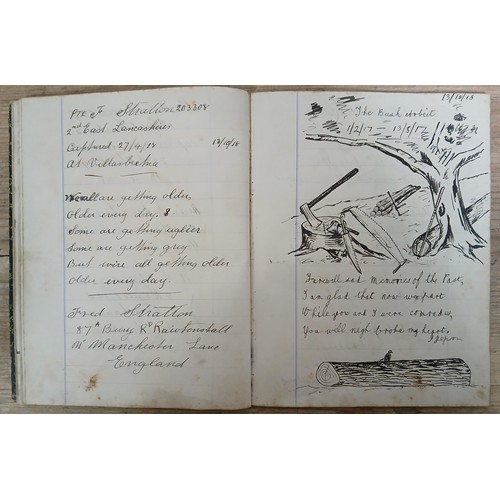 Pte F Stratton 203308
2nd East Lancashires
Captured 27/4/18 13/10/18
At Villarbretna
We all are getting older,
Older every day.
Some are getting uglier
Some are getting grey
But we're all getting older
Older every day
Fred Stratton
87A Bury Rd Rawtonstall
Nr Manchester Lanc
England
13/10/18
The Bush orbit
1/2/17 — 13/8/17
Farewell sad Memories of the Past,
I am glad that now we part
While you and I were comrades,
You will nigh broke my heart.